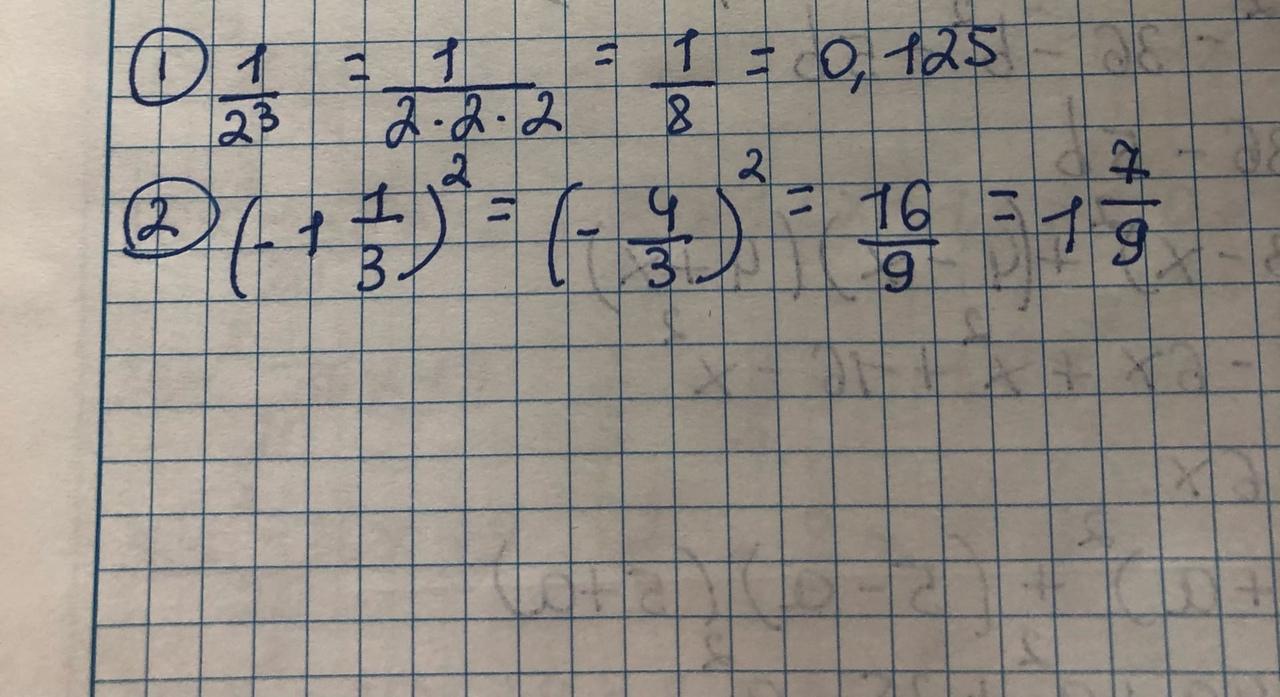 ① 1/2³ = 1/(2·2·2) = 1/8 = 0,125
② (-1 1/3)² = (-4/3)² = 16/9 = 1 7/9